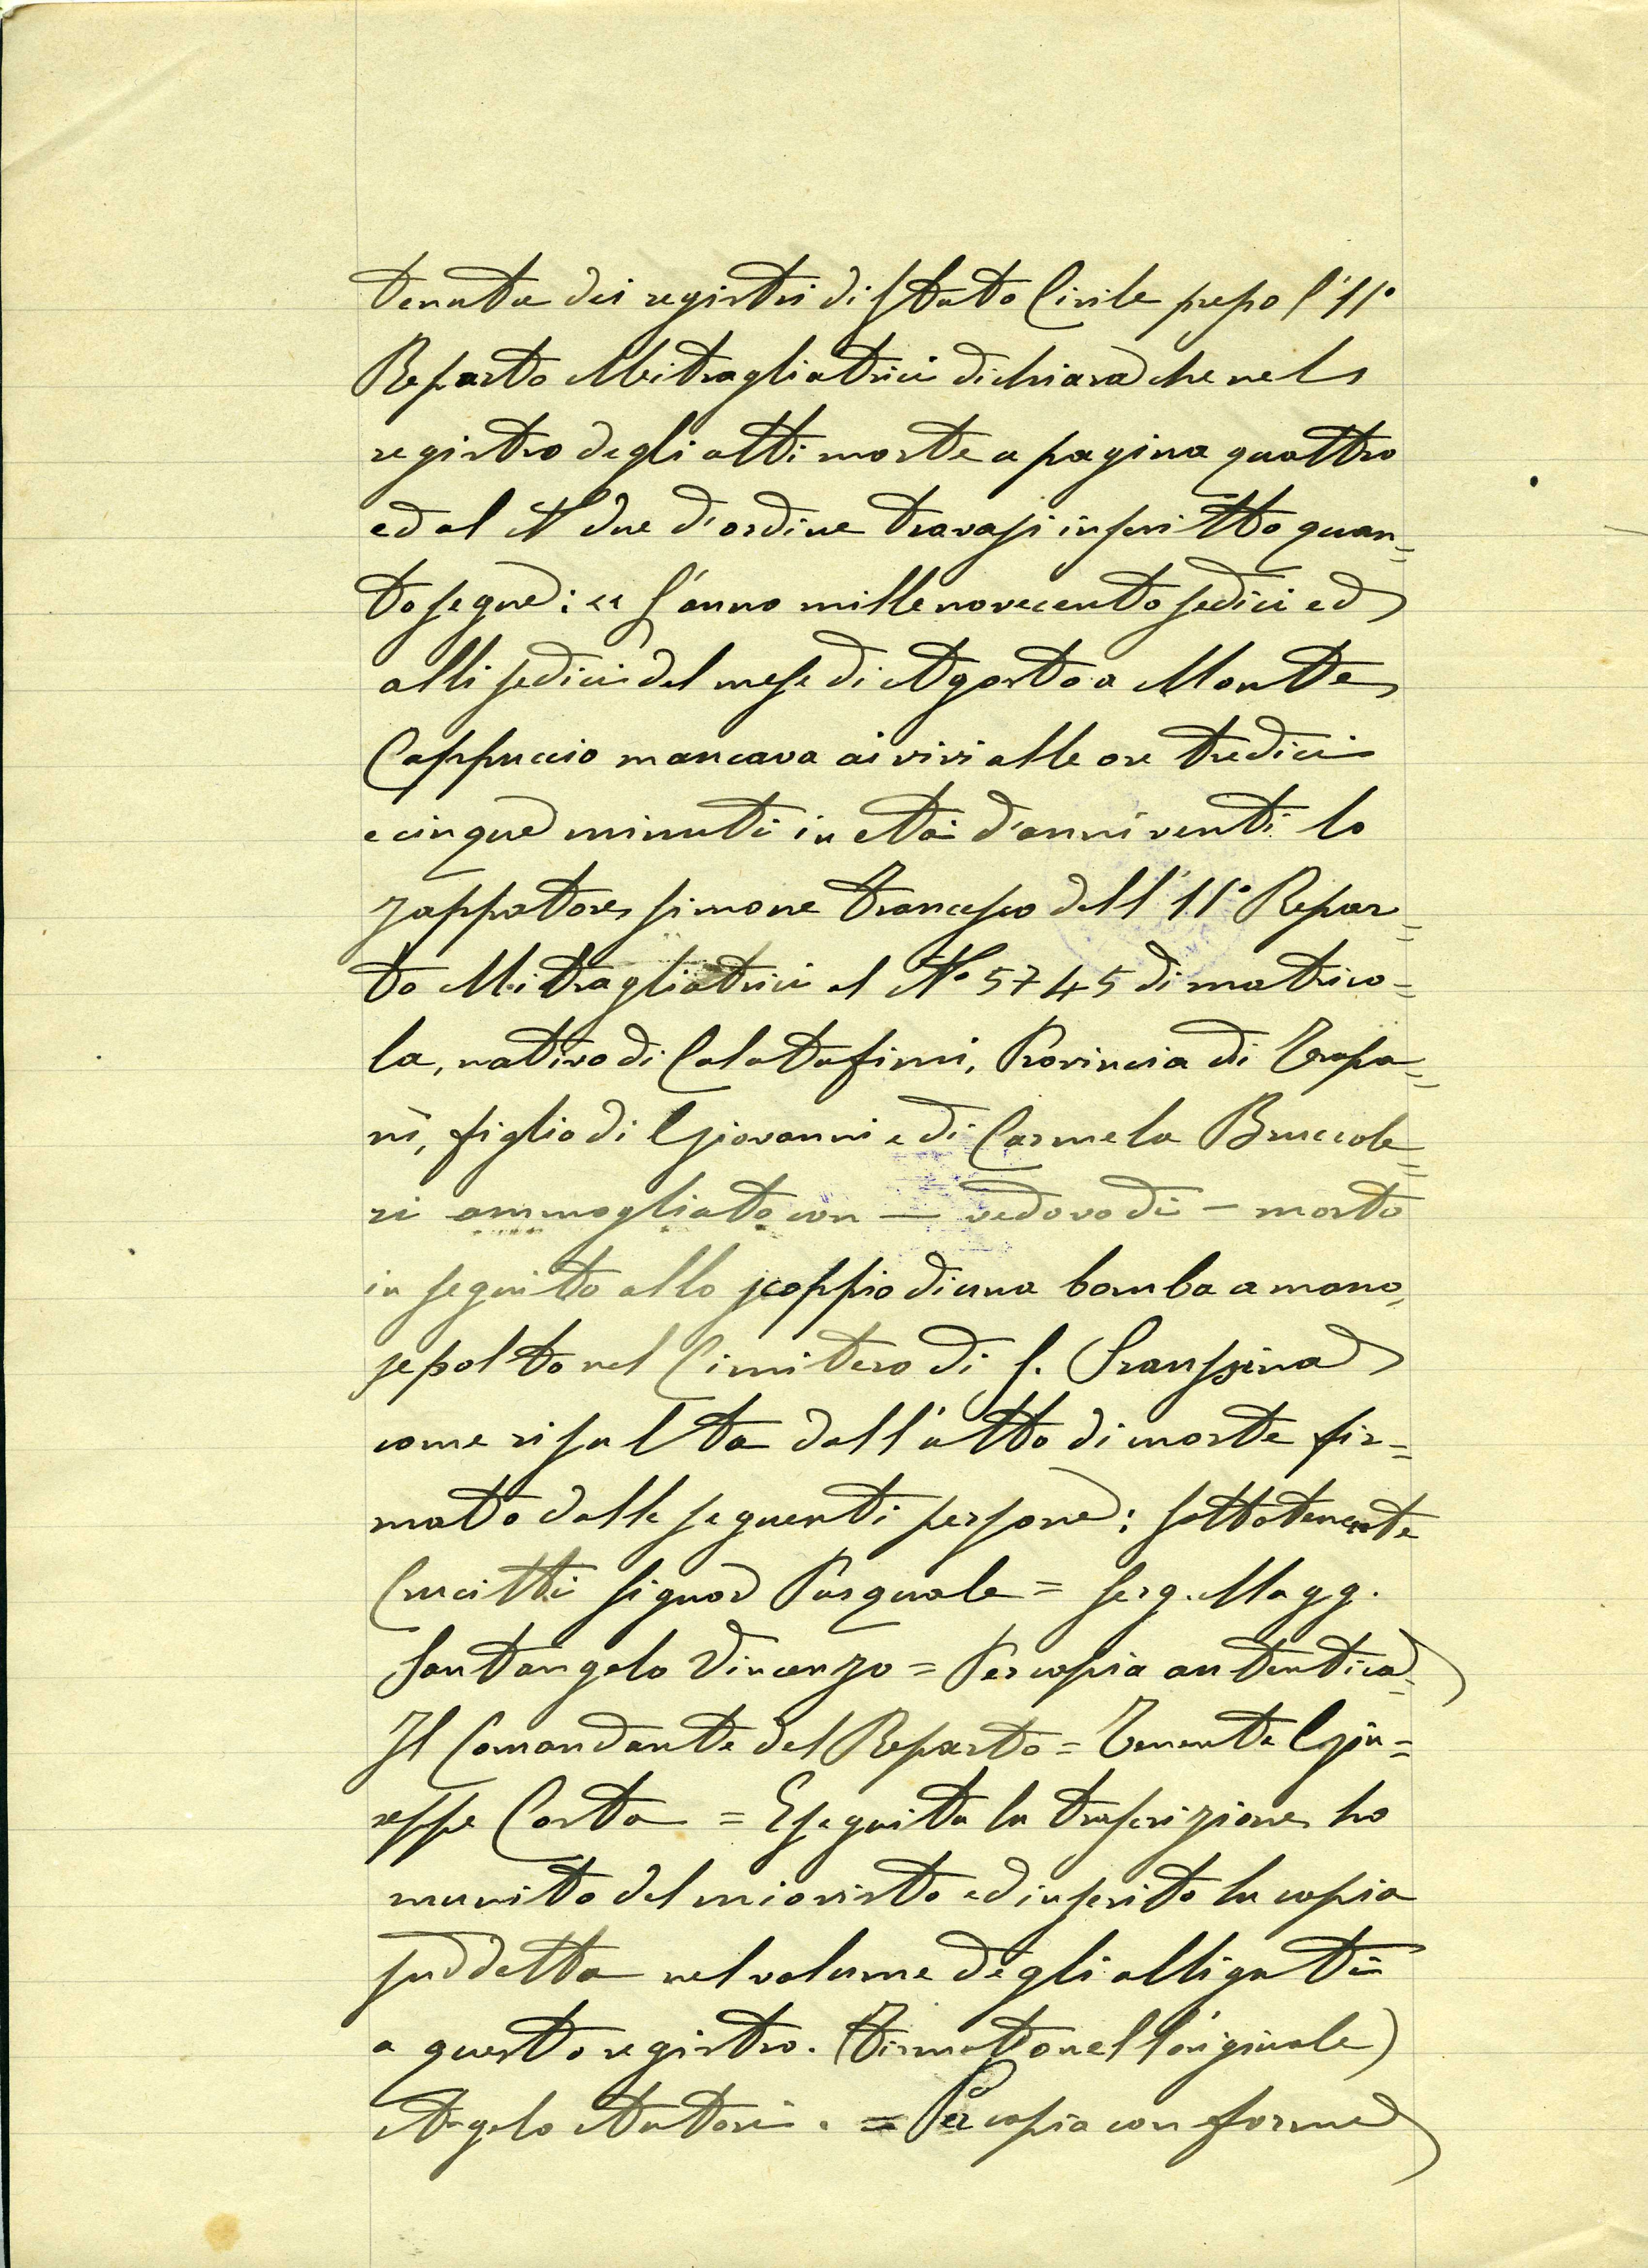 tenuta dei registri di Stato Civile presso l'11°
Reparto Mitragliatrici dichiara che nel
registro degli atti morte a pagina quattro
ed al N due d'ordine travasi inscritto quan=
to segue: « L'anno millenovecentosedici ed
alli sedici del mese di Agosto a Monte
Cappuccio mancava ai vivi alle ore tredici
e cinque minuti in età d'anni venti lo
zappatore Simone Francesco dell'11° Repar=
to Mitragliatrici al N° 5745 di matrico=
la, nativo di Calatafimi, Provincia di Trapa=
ni, figlio di Giovanni e di Carmela Bruccole=
ri ammogliato con — vedovo di — morto
in seguito allo scoppio di una bomba a mano,
sepolto nel Cimitero di S.
come risulta dall'atto di morte fir=
mato dalle seguenti persone: Sottotenente
Crucitti Signor Pasquale = Serg. Magg.
Santangelo Vincenzo = Per copia autentica
Il Comandante del Reparto = Tenente Giu=
seppe Costa = Eseguita la trascrizione ho
munito del mio visto ed inserito la copia
suddetta nel volume degli alligati
a questo registro. (Firmato nell'originale)
Angelo = Per copia conforme